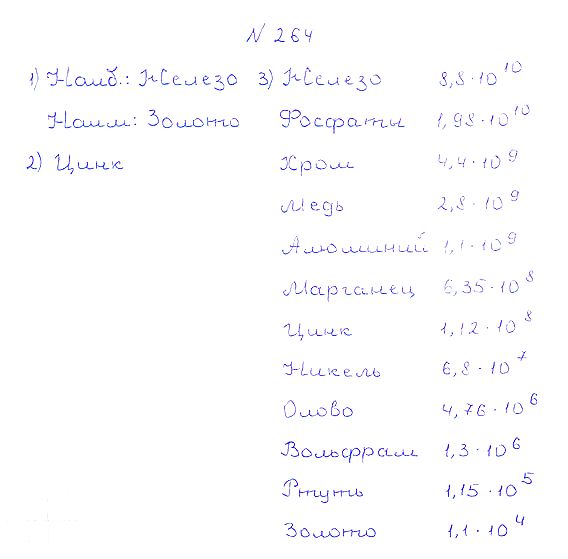 N 264
1) Наиб.: Железо 3) Железо 8,8·10¹⁰
Наим: Золото Фосфаты 1,98·10¹⁰
2) Цинк Хром 4,4·10⁹
Медь 2,8·10⁹
Алюминий 1,1·10⁹
Марганец 6,35·10⁸
Цинк 1,12·10⁸
Никель 6,8·10⁷
Олово 4,76·10⁶
Вольфрам 1,3·10⁶
Ртуть 1,15·10⁵
Золото 1,1·10⁴